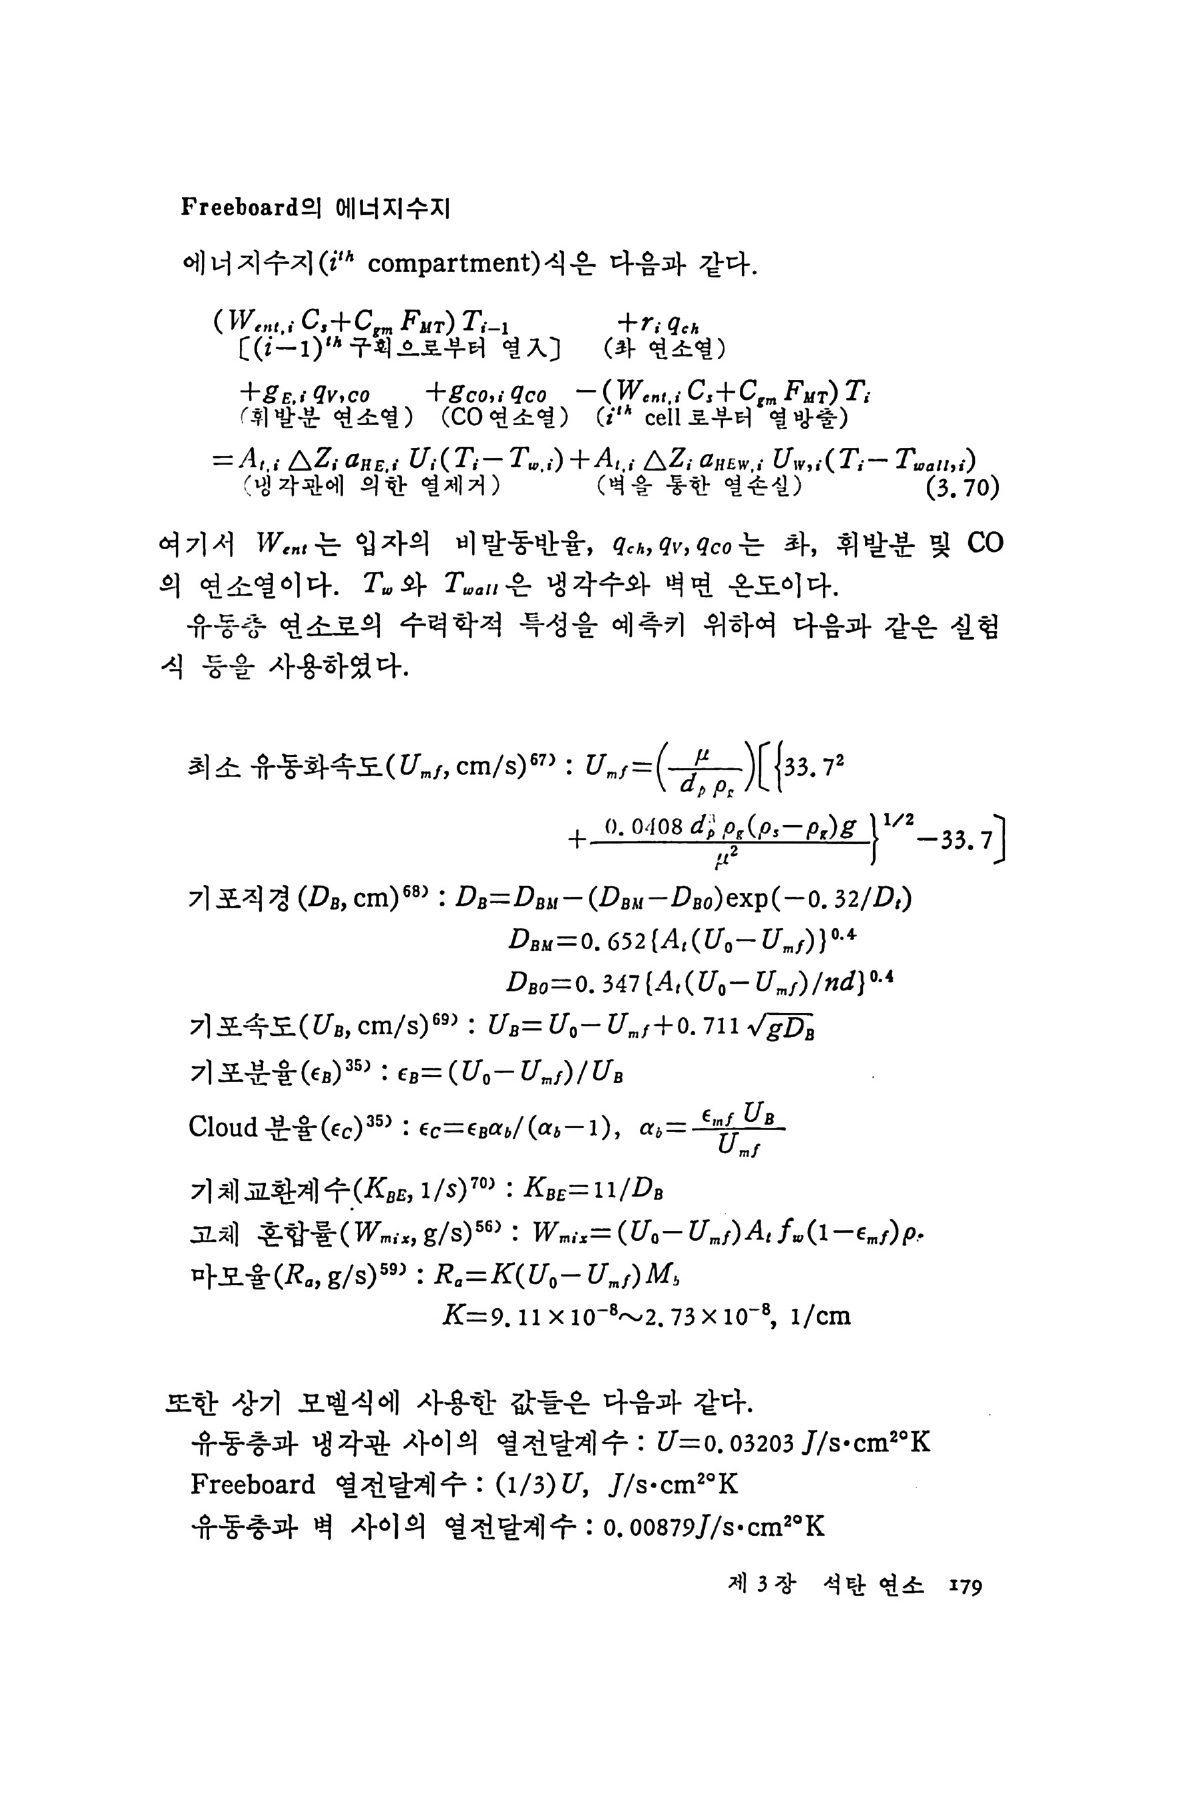 Freeboard의 에너지수지
에너지수지(i^th compartment)식은 다음과 같다.
(W_ent,i C_s+C_gm F_MT) T_i−1 +r_i q_ch
[(i−1)^th 구획으로부터 열入] (촤 연소열)
+g_E,i q_V,CO +g_CO,i q_CO −(W_ent,i C_s+C_gm F_MT) T_i
(휘발분 연소열) (CO연소열) (i^th cell로부터 열방출)
=A_t,i △Z_i a_HE,i U_i(T_i−T_w,i)+A_t,i △Z_i a_HEw,i U_w,i(T_i−T_wall,i)
(냉각관에 의한 열제거) (벽을 통한 열손실) (3.70)
여기서 W_ent는 입자의 비말동반율, q_ch, q_V, q_CO는 촤, 휘발분 및 CO
의 연소열이다. T_w와 T_wall은 냉각수와 벽면 온도이다.
유동층 연소로의 수력학적 특성을 예측키 위하여 다음과 같은 실험
식 등을 사용하였다.
최소 유동화속도(U_mf, cm/s)^67) : U_mf=(μ/d_p ρ_g)[{33.7²
+ 0.0408 d_p³ ρ_g(ρ_s−ρ_g)g/μ² }^1/2−33.7]
기포직경(D_B, cm)^68) : D_B=D_BM−(D_BM−D_BO)exp(−0.32/D_t)
D_BM=0.652{A_t(U_0−U_mf)}^0.4
D_BO=0.347{A_t(U_0−U_mf)/nd}^0.4
기포속도(U_B, cm/s)^69) : U_B=U_0−U_mf+0.711√gD_B
기포분율(ϵ_B)^35) : ϵ_B=(U_0−U_mf)/U_B
Cloud분율(ϵ_C)^35) : ϵ_C=ϵ_Bα_b/(α_b−1), α_b=ϵ_mf U_B/U_mf
기체교환계수(K_BE, 1/s)^70) : K_BE=11/D_B
고체 혼합률(W_mix, g/s)^56) : W_mix=(U_0−U_mf)A_t f_w(1−ϵ_mf)ρ_s
마모율(R_a, g/s)^59) : R_a=K(U_0−U_mf)M_b
K=9.11×10^−8～2.73×10^−8, 1/cm
또한 상기 모델식에 사용한 값들은 다음과 같다.
유동층과 냉각관 사이의 열전달계수 : U=0.03203 J/s·cm²°K
Freeboard 열전달계수 : (1/3)U, J/s·cm²°K
유동층과 벽 사이의 열전달계수 : 0.00879J/s·cm²°K
제 3 장 석탄 연소 179